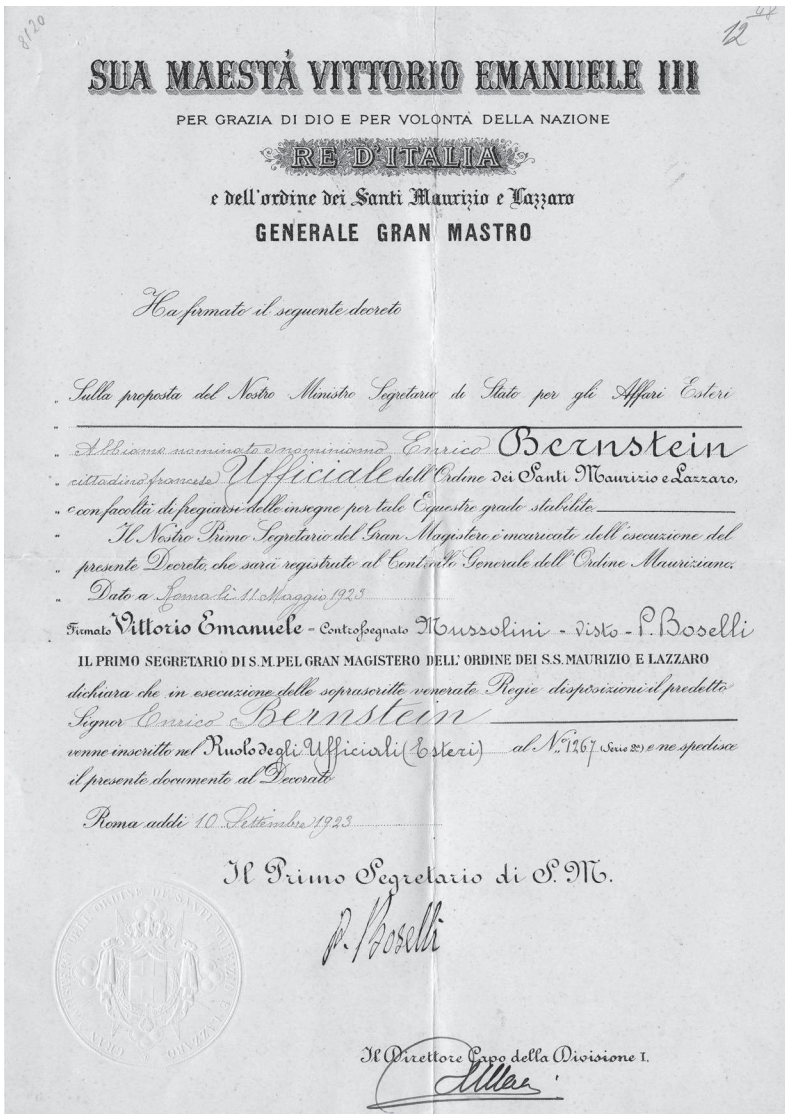 8120
48
12
SUA MAESTÀ VITTORIO EMANUELE III
PER GRAZIA DI DIO E PER VOLONTÀ DELLA NAZIONE
RE D'ITALIA
e dell'ordine dei Santi Maurizio e Lazzaro
GENERALE GRAN MASTRO
Ha firmato il seguente decreto
„ Sulla proposta del Nostro Ministro Segretario di Stato per gli Affari Esteri
„
„ Abbiamo nominato e nominiamo Enrico Bernstein
„ cittadino francese Ufficiale dell'Ordine dei Santi Maurizio e Lazzaro,
„ con facoltà di fregiarsi delle insegne per tale Equestre grado stabilite.
„ Il Nostro Primo Segretario del Gran Magistero è incaricato dell'esecuzione del
„ presente Decreto, che sarà registrato al Controllo Generale dell'Ordine Mauriziano.
„ Dato a Roma li 11 Maggio 1923
Firmato Vittorio Emanuele - Controssegnato Mussolini - Visto - P. Boselli
IL PRIMO SEGRETARIO DI S.M. PEL GRAN MAGISTERO DELL'ORDINE DEI S.S. MAURIZIO E LAZZARO
dichiara che in esecuzione delle soprascritte venerate Regie disposizioni il predetto
Signor Enrico Bernstein
venne inscritto nel Ruolo degli Ufficiali (Esteri) al N.º 1267 (Serie 2ª) e ne spedisce
il presente documento al Decorato.
Roma addì 10 Settembre 1923
Il Primo Segretario di S.M.
P. Boselli
GRAN MAGISTERO DELL'ORDINE DE' SANTI MAURIZIO E LAZZARO
Il Direttore Capo della Divisione I.